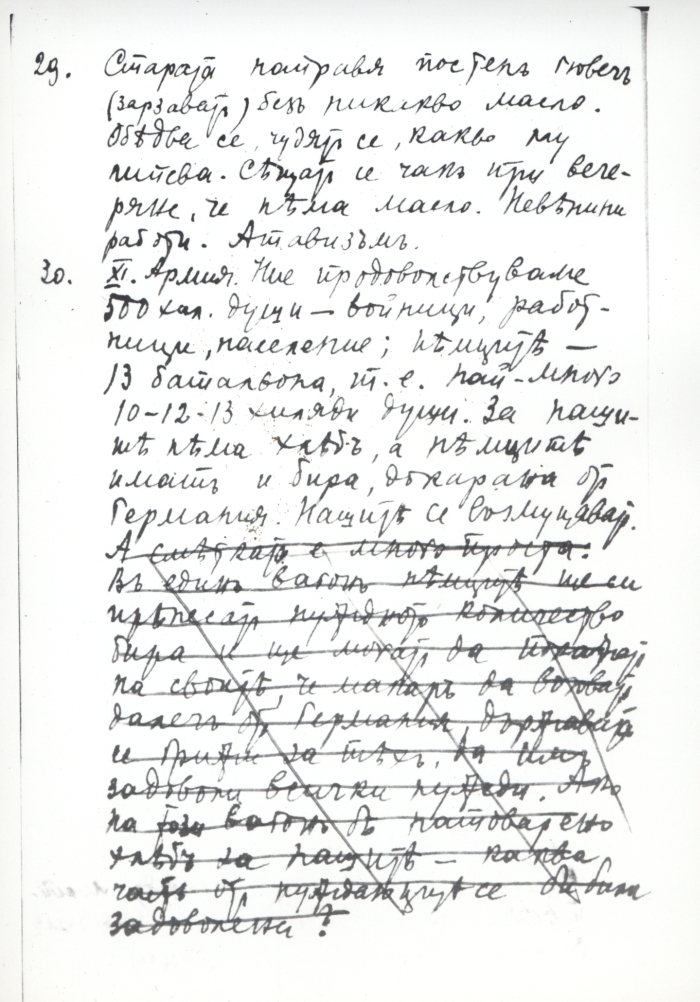 29. Старата направя постенъ гювечъ
(зарзаватъ) безъ никакво масло.
Обѣдва се, чудятъ се, какво му
липсва. Сѣщатъ се чакъ при вече-
ряне, че нѣма масло. Невѣнини
работи. Атавизъмъ.
30. XI. Армия. Ние продоволствуваме
500 хил. души — войници, работ-
ници, население; нѣмцитѣ —
13 баталиона, т. е. най-много
10-12-13 хиляди души. За наши-
тѣ нѣма хлѣбъ, а нѣмцитѣ
иматъ и бира, докарана отъ
Германия. Нашитѣ се възмущаватъ.
А смѣтката е много проста:
Въ единъ вагонъ нѣмцитѣ ще си
прѣнесатъ нуждното количество
бира и ще могатъ да покажатъ
на своитѣ, че макаръ да воюватъ
далечъ отъ Германия, държавата
се грижи за тѣхъ, да имъ
задоволи всички нужди. Ако
на този вагонъ бѣ натоварено
хлѣбъ за нашитѣ — каква
часть отъ нуждающитѣ се би била
задоволена?